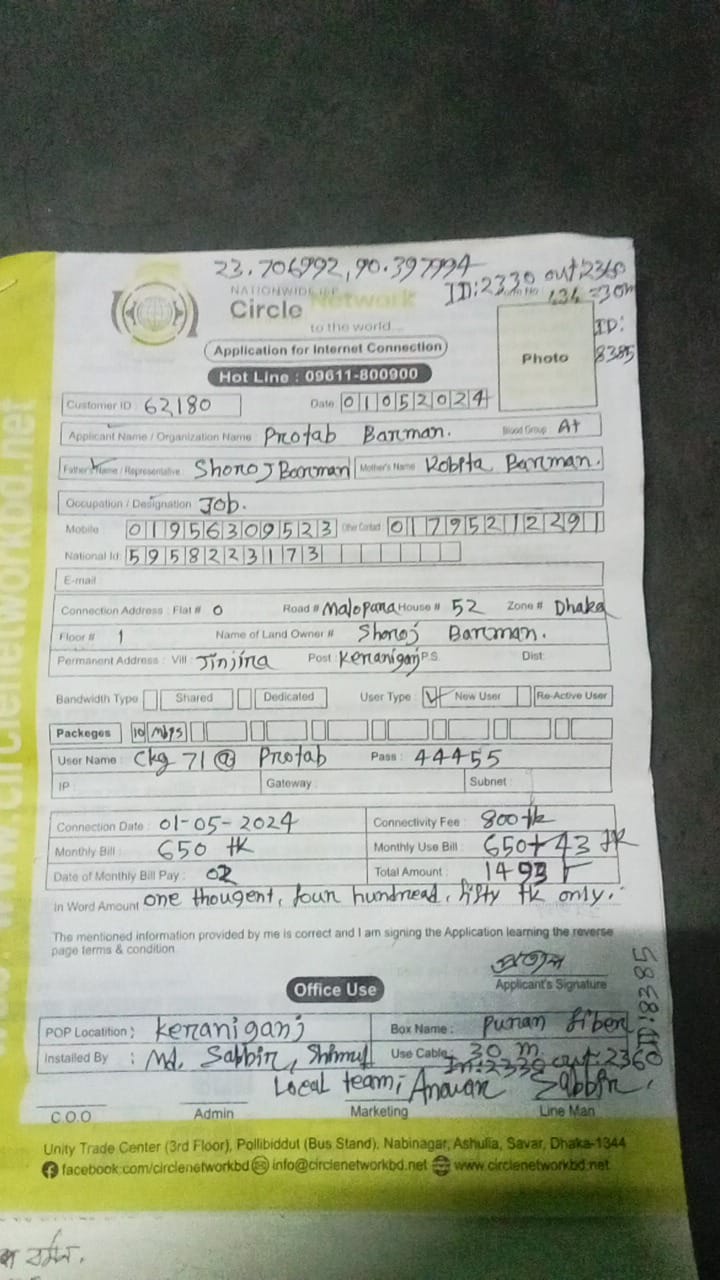 23.706992, 90.397994
ID:2330 out:2360
=30m
ID:
8385
NATIONWIDE ISP
Circle Network
to the world...
Application for Internet Connection
Photo
Hot Line : 09611-800900
Customer ID : 62180 Date 01052024
Applicant Name / Organization Name Protab Barman. Blood Group A+
Father's Name / Representative Shoroj Barman Mother's Name Robita Barman.
Occupation / Designation Job.
Mobile 01956309523 Other Contact 01795212291
National Id 5958223173
E-mail
Connection Address : Flat # 0 Road # Malopara House # 52 Zone # Dhaka
Floor # 1 Name of Land Owner # Shoroj Barman.
Permanent Address : Vill : Jinjira Post : Keraniganj P.S. Dist:
Bandwidth Type Shared Dedicated User Type : New User Re-Active User
Packeges 10 Mbps
User Name : Ckg 71@ Protab Pass : 44455
IP : Gateway : Subnet :
Connection Date : 01-05-2024 Connectivity Fee : 800 tk
Monthly Bill : 650 tk Monthly Use Bill : 650+43 tk
Date of Monthly Bill Pay : 02 Total Amount : 1493
In Word Amount one thougent, four hundread, fifty tk only.
The mentioned information provided by me is correct and I am signing the Application learning the reverse
page terms & condition.
প্রতাপ
Applicant's Signature
Office Use
POP Locatition : Keraniganj Box Name : Puran fiber
Installed By : Md. Sabbir, Use Cable 30 m
In:2330 out:2360
ID:8385
Local team; Sabbir.
C.O.O Admin Marketing Line Man
Unity Trade Center (3rd Floor), Pollibiddut (Bus Stand), Nabinagar, Ashulia, Savar, Dhaka-1344
facebook.com/circlenetworkbd info@circlenetworkbd.net www.circlenetworkbd.net
www.circlenetworkbd.net
বর্মন.